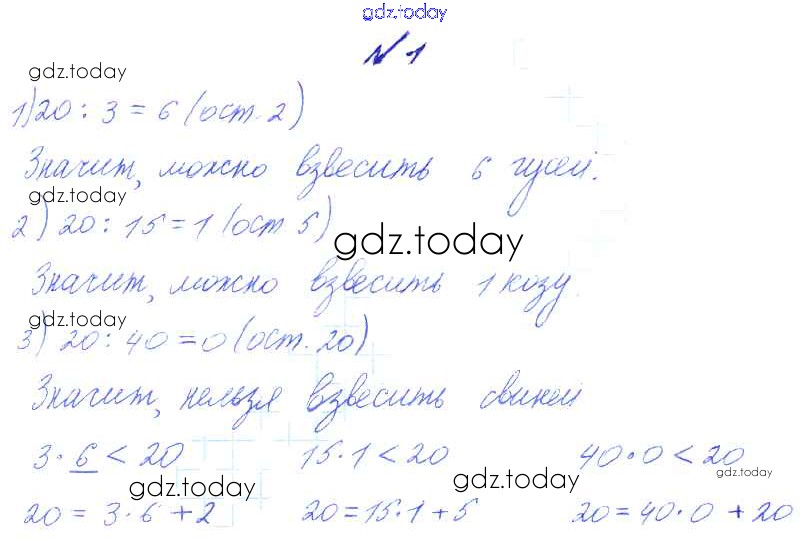 gdz.today
№ 1
gdz.today
1) 20 : 3 = 6 (ост. 2)
Значит, можно взвесить 6 гусей.
gdz.today
2) 20 : 15 = 1 (ост 5)
gdz.today
Значит, можно взвесить 1 козу.
gdz.today
3) 20 : 40 = 0 (ост. 20)
Значит, нельзя взвесить свиней
3 · 6 < 20 15 · 1 < 20 40 · 0 < 20
gdz.today gdz.today gdz.today
20 = 3 · 6 + 2 20 = 15 · 1 + 5 20 = 40 · 0 + 20